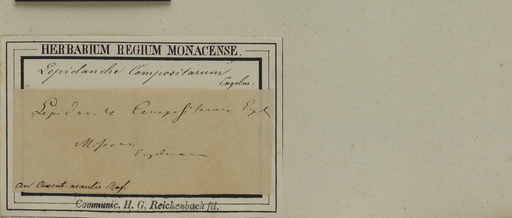 HERBARIUM REGIUM MONACENSE.
Lepidanche Compositarum
Engelm.
Lepidanche Compositarum Engl
Missouri
Engelmann
an Cuscut.
Communic. H. G. Reichenbach fil.